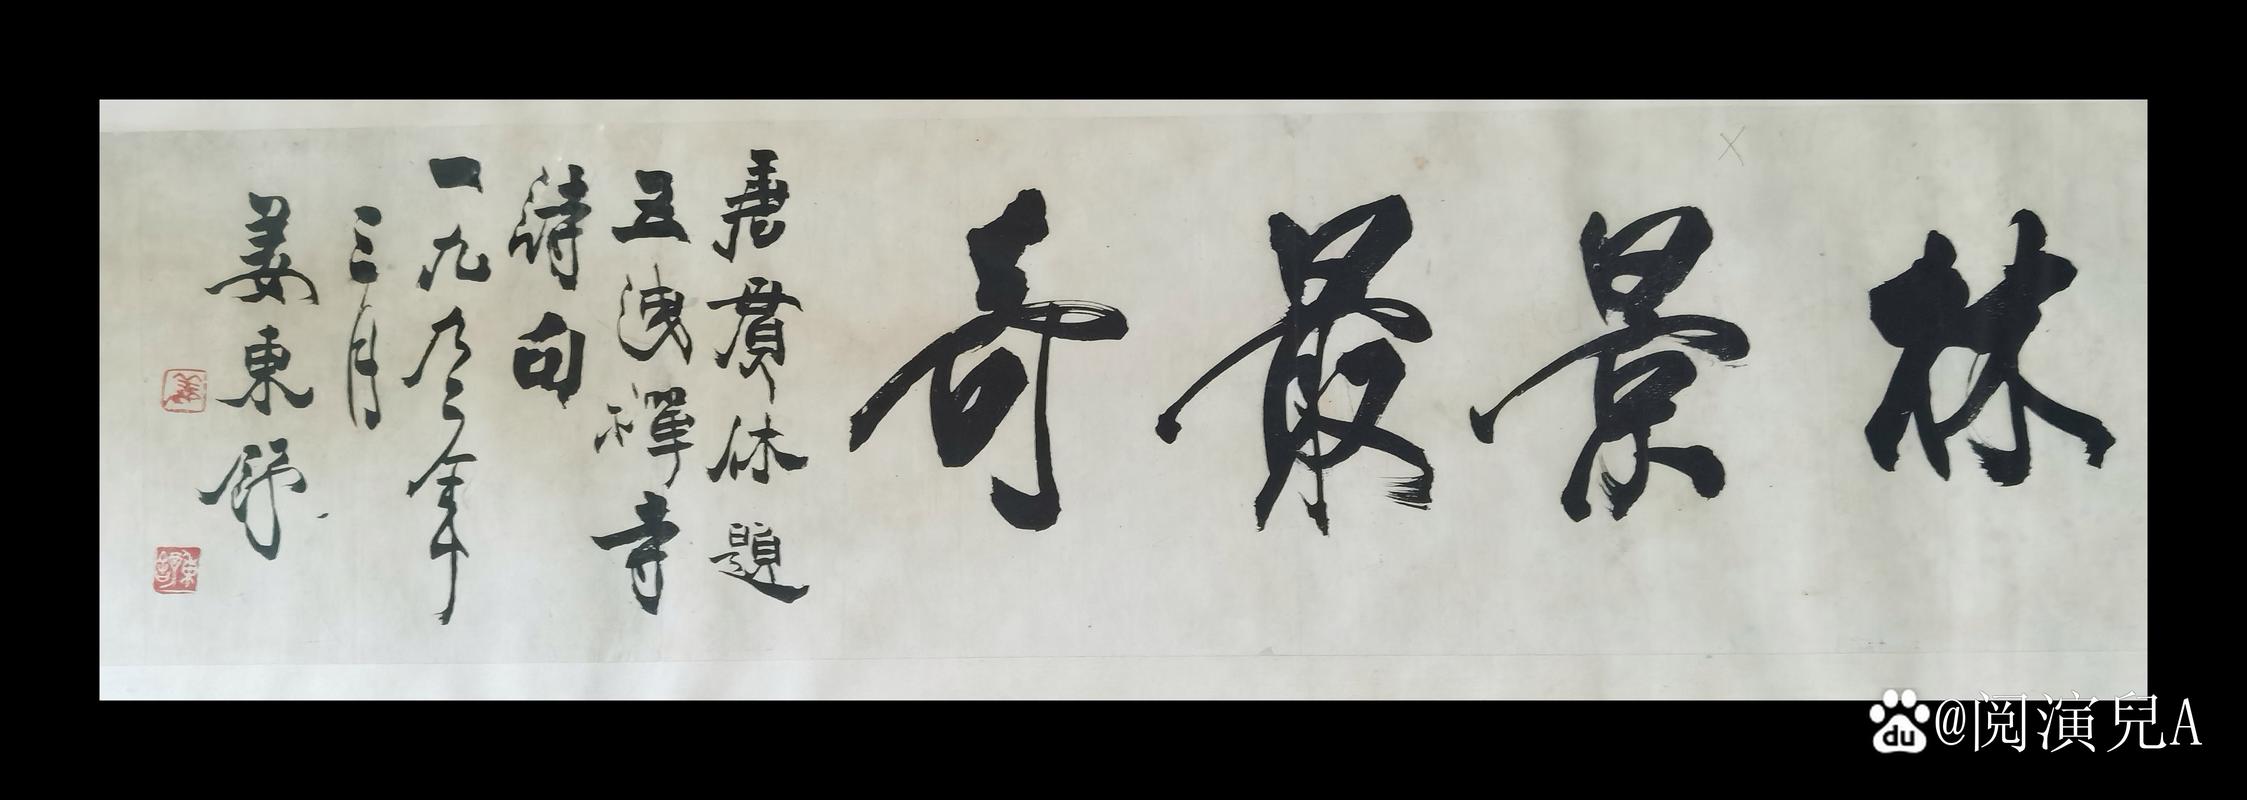 林景最奇
唐貫休題
五洩禪寺
詩句
一九九二年
三月
姜東舒
姜
東舒
du @阅演兒A